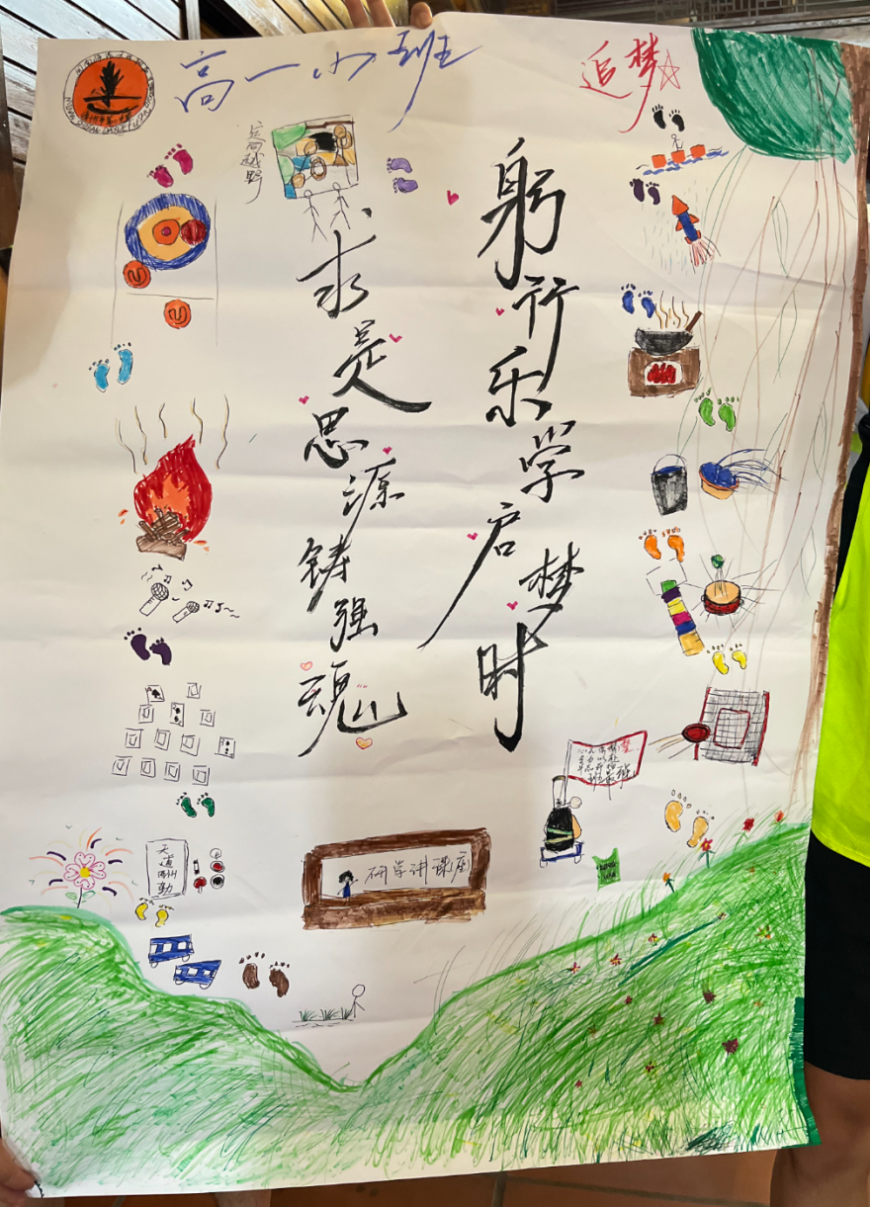 高一小班
追梦
定向越野
躬行乐学启梦时
求是思源铸强魂
天道酬勤
研学讲课座